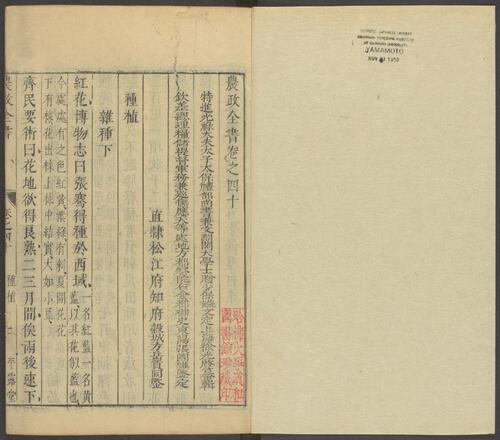 農政全書卷之四十
特進光祿大夫太子太保禮部尚書兼文淵閣大學士贈少保諡文定上海徐光啟纂輯
欽差總理糧儲提督軍務兼巡撫應天等處地方都察院右僉都御史東陽張國維鑒定
直隸松江府知府穀城方岳貢同鑒
種植
雜種下
紅花博物志曰張騫得種於西域一名紅藍一名黃藍以其花似藍也
今處處有之色紅黃葉綠有刺夏開花花下有梂花出梂上梂中結實大如小豆
齊民要術曰花地欲得良熟二三月間候雨後速下
農政全書
卷之四十
種植
平露堂
YAMAMOTO